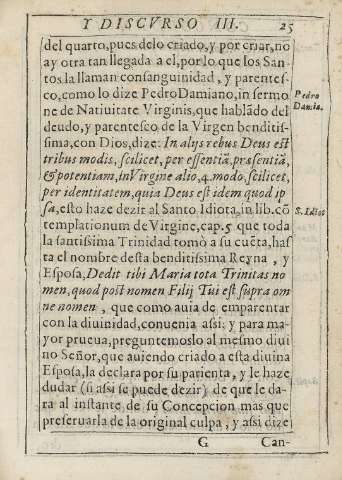 Y DISCVRSO III. 25
del quarto, pues delo criado, y por criar, no
ay otra tan llegada a el, por lo que los San
tos la llaman consanguinidad, y parentes-
co, como lo dize Pedro Damiano, in sermo
Pedro
Damia.
ne de Natiuitate Virginis, que hablādo del
deudo, y parentesco de la Virgen benditis-
sima, con Dios, dize: In alijs rebus Deus est
tribus modis, scilicet, per essentiā, præsentiā,
& potentiam, in Virgine alio, 4. modo, scilicet,
per identitatem, quia Deus est idem quod ip
sa, esto haze dezir al Santo Idiota, in lib. cō
S. Idiot
templationum de Virgine, cap. 5 que toda
la santissima Trinidad tomò a su cuēta, has
ta el nombre desta benditissima Reyna, y
Esposa, Dedit tibi Maria tota Trinitas no
men, quod post nomen Filij Tui est supra om
ne nomen, que como auia de emparentar
con la diuinidad, conuenia assi; y para ma-
yor prueua, preguntemoslo al mesmo diui
no Señor, que auiendo criado a esta diuina
Esposa, la declara por su parienta, y le haze
dudar (si assi se puede dezir) de que le da-
ra al instante de su Concepcion mas que
preseruarla de la original culpa, y assi dize
G Can-